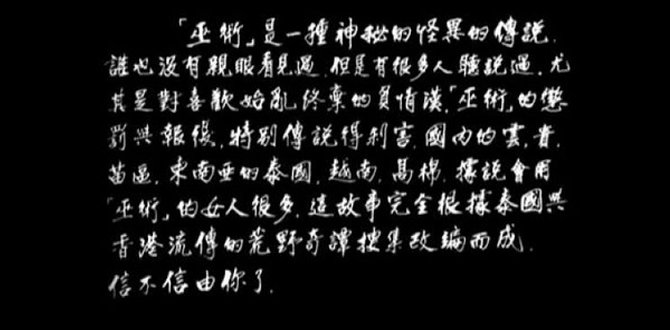 「巫術」是一種神秘的怪異的傳說.
誰也沒有親眼看見過.但是有很多人聽說過.尤
其是對喜歡始亂終棄的負情漢,「巫術」的懲
罰與報復,特別傳說得利害.國內的雲,貴,
苗區,東南亞的泰國,越南,高棉,據說會用
「巫術」的女人很多,這故事完全根據泰國與
香港流傳的荒野奇譚搜集改編而成.
信不信由你了.